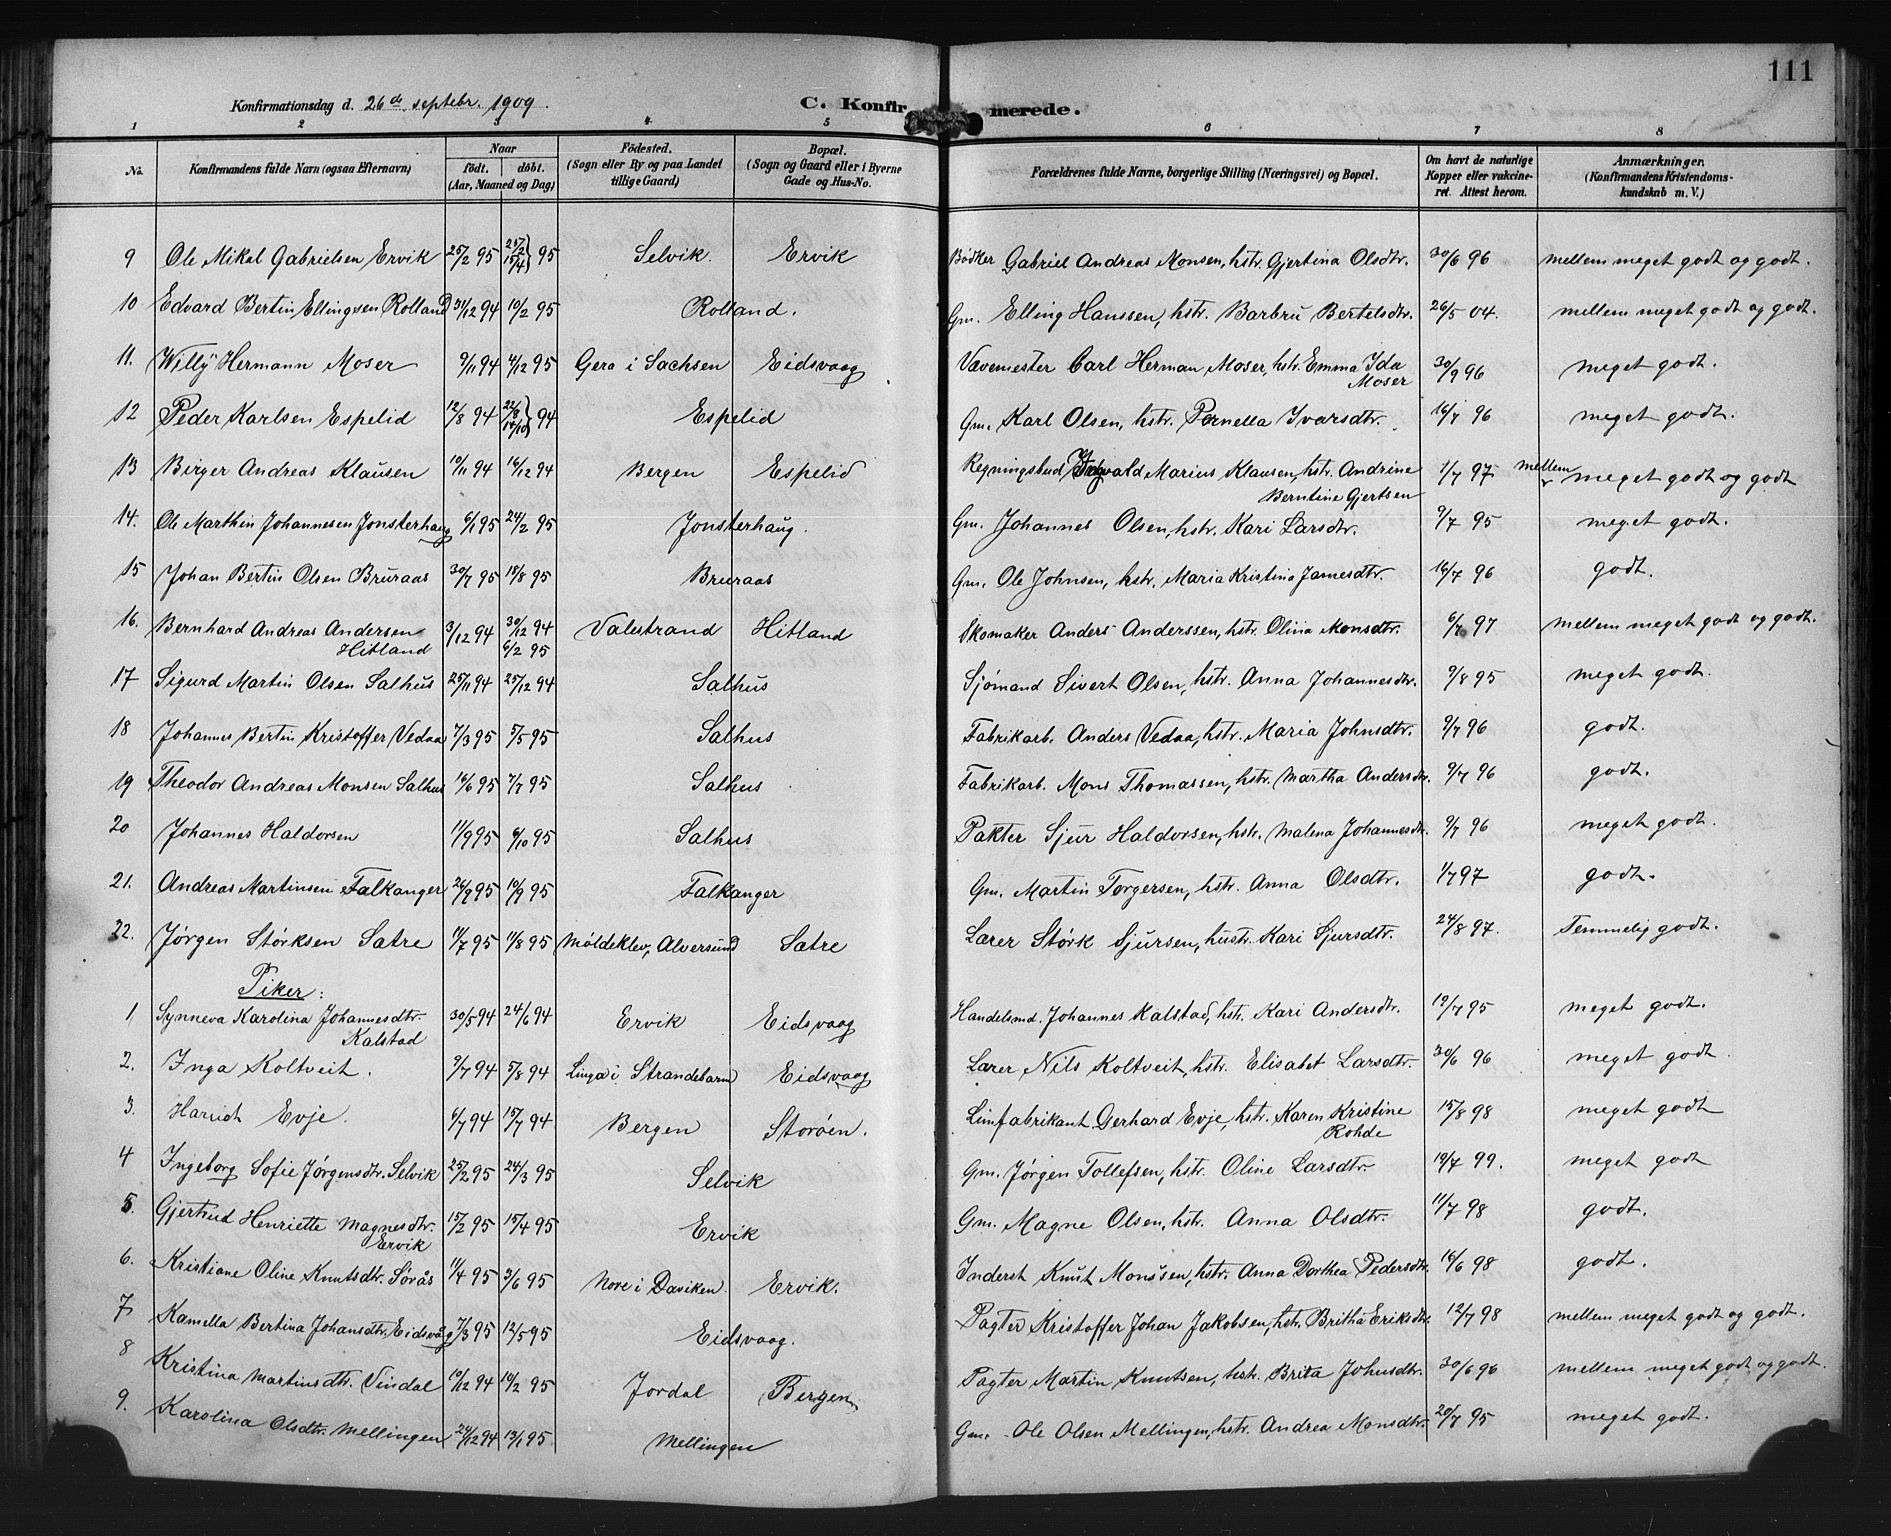 111
Konfirmationsdag d. 26de septebr. 1909. C. Konfirmerede.
1 2 3 4 5 6 7 8
No. Konfirmandens fulde Navn (ogsaa Efternavn) Naar födt. döbt. (Aar, Maaned og Dag) Födested. (Sogn eller By og paa Landet tillige Gaard) Bopæl. (Sogn og Gaard eller i Byerne Gade og Hus-No. Forældrenes fulde Navne, borgerlige Stilling (Næringsvei) og Bopæl. Om havt de naturlige Kopper eller vakcineret. Attest herom. Anmærkninger. (Konfirmandens Kristendomskundskab m. V.)
9 Ole Mikal Gabrielsen Ervik 25/2 95 25/2 15/4 } 95 Selvik Ervik Bödker Gabriel Andreas Monsen, hstr. Gjertina Olsdtr. 30/6 96 mellem meget godt og godt.
10 Edvard Bertin Ellingsen Rolland 31/12 94 10/2 95 Rolland. Gm. Elling Hanssen, hstr. Barbru Bertelsdtr. 26/5 04. mellem meget godt og godt.
11. Willy Hermann Moser 9/11 94 4/12 95 Gera i Sachsen Eidsvaag Vævemester Carl Herman Moser, hstr. Emma Ida Moser 30/9 96 meget godt.
12 Peder Karlsen Espelid 12/8 94 22/8 14/10 } 94 Espelid Gm. Karl Olsen, hstr. Pernella Ivarsdtr. 16/7 96 meget godt.
13 Birger Andreas Klausen 10/11 94 16/12 94 Bergen Espelid Regningsbud Ingvald Marius Klausen, hstr. Andrine Berntine Gjertsen 1/7 97 mellem meget godt og godt
14. Ole Marthin Johannesen Jonsterhaug 6/1 95 24/2 95 Jonsterhaug. Gm. Johannes Olsen, hstr. Kari Larsdtr. 9/7 95 meget godt.
15 Johan Bertin Olsen Bruraas 30/7 95 18/8 95 Bruraas Gm. Ole Johnsen, hstr. Maria Kristina Jamesdtr. 16/7 96 godt.
16. Bernhard Andreas Andersen Hitland 3/12 94 30/12 94 6/2 95 Valestrand Hitland Skomaker Anders Anderssen, hstr. Olina Monsdtr. 6/7 97 mellem meget godt og godt.
17 Sigurd Martin Olsen Salhus 25/11 94 25/12 94 Salhus Sjömand Sivert Olsen, hstr. Anna Johannesdtr. 9/8 95 meget godt.
18 Johannes Bertin Kristoffer Vedaa 7/3 95 5/5 95 Salhus Fabrikarb. Anders Vedaa, hstr. Maria Johnsdtr. 9/7 96 godt.
19 Theodor Andreas Monsen Salhus 16/6 95 7/7 95 Salhus Fabrikarb. Mons Thomassen, hstr. Martha Andersdtr. 9/7 96 godt.
20 Johannes Haldorsen 11/9 95 6/10 95 Salhus Pakter Sjur Haldorsen, hstr. Malena Johannesdtr. 9/7 96 meget godt.
21. Andreas Martinsen Falkanger 10/9 95 Falkanger Gm. Martin Torgersen, hstr. Anna Olsdtr. 1/7 97 godt.
22. Jørgen Størksen Sætre 11/7 95 11/8 95 Moldeklev, Alversund Sætre Lærer Størk Sjursen, hustr. Kari Sjursdtr. 24/8 97. Temmelig godt.
Piker:
1 Synneva Karolina Johannesdtr. Kalstad 30/5 94 24/6 94 Ervik Eidsvaag Handelsmd. Johannes Kalstad, hstr. Kari Andersdtr. 19/7 95 meget godt.
2. Inga Koltveit. 9/7 94 5/8 94 Linga i Strandebarm Eidsvaag Lærer Nils Koltveit, hstr. Elisabet Larsdtr. 30/6 96 meget godt
3. Evje. 6/7 94 15/7 94 Bergen Storøen. Limfabrikant Gerhard Evje, hstr. Karen Kristine Rohde 15/8 98 meget godt
4 Ingeborg Sofie Jørgensdtr. Selvik 25/2 95 24/3 95 Selvik Gm. Jørgen Tollefsen, hstr. Oline Larsdtr. 19/7 99. meget godt
5. Gjertrud Henriette Magnesdtr. Ervik 15/2 95 15/4 95 Ervik Gm. Magne Olsen, hstr. Anna Olsdtr. 11/7 98 godt.
6. Kristiane Oline Knutsdtr. Sørås 1/4 95 3/6 95 Nore i Daviken Ervik. Inderst Knut Monssen, hstr. Anna Dorthea Pedersdtr. 16/6 98 godt.
7 Kamella Bertina Johansdtr. Eidsvåg 7/3 95 12/5 95 Eidsvaag. Pagter Kristoffer Johan Jakobsen, hstr. Britha Eriksdtr. 12/7 98 mellem meget godt og godt.
8 Kristina Martinsdtr. Vindal 10/12 94 10/2 95 Jordal Bergen Pagter Martin Knutsen, hstr. Brita Johnsdtr. 30/6 96 mellem meget godt og godt.
9. Karolina Olsdtr. Mellingen 24/12 94 13/1 95 Mellingen Gm. Ole Olsen Mellingen, hstr. Andrea Monsdtr. 20/7 95 meget godt.